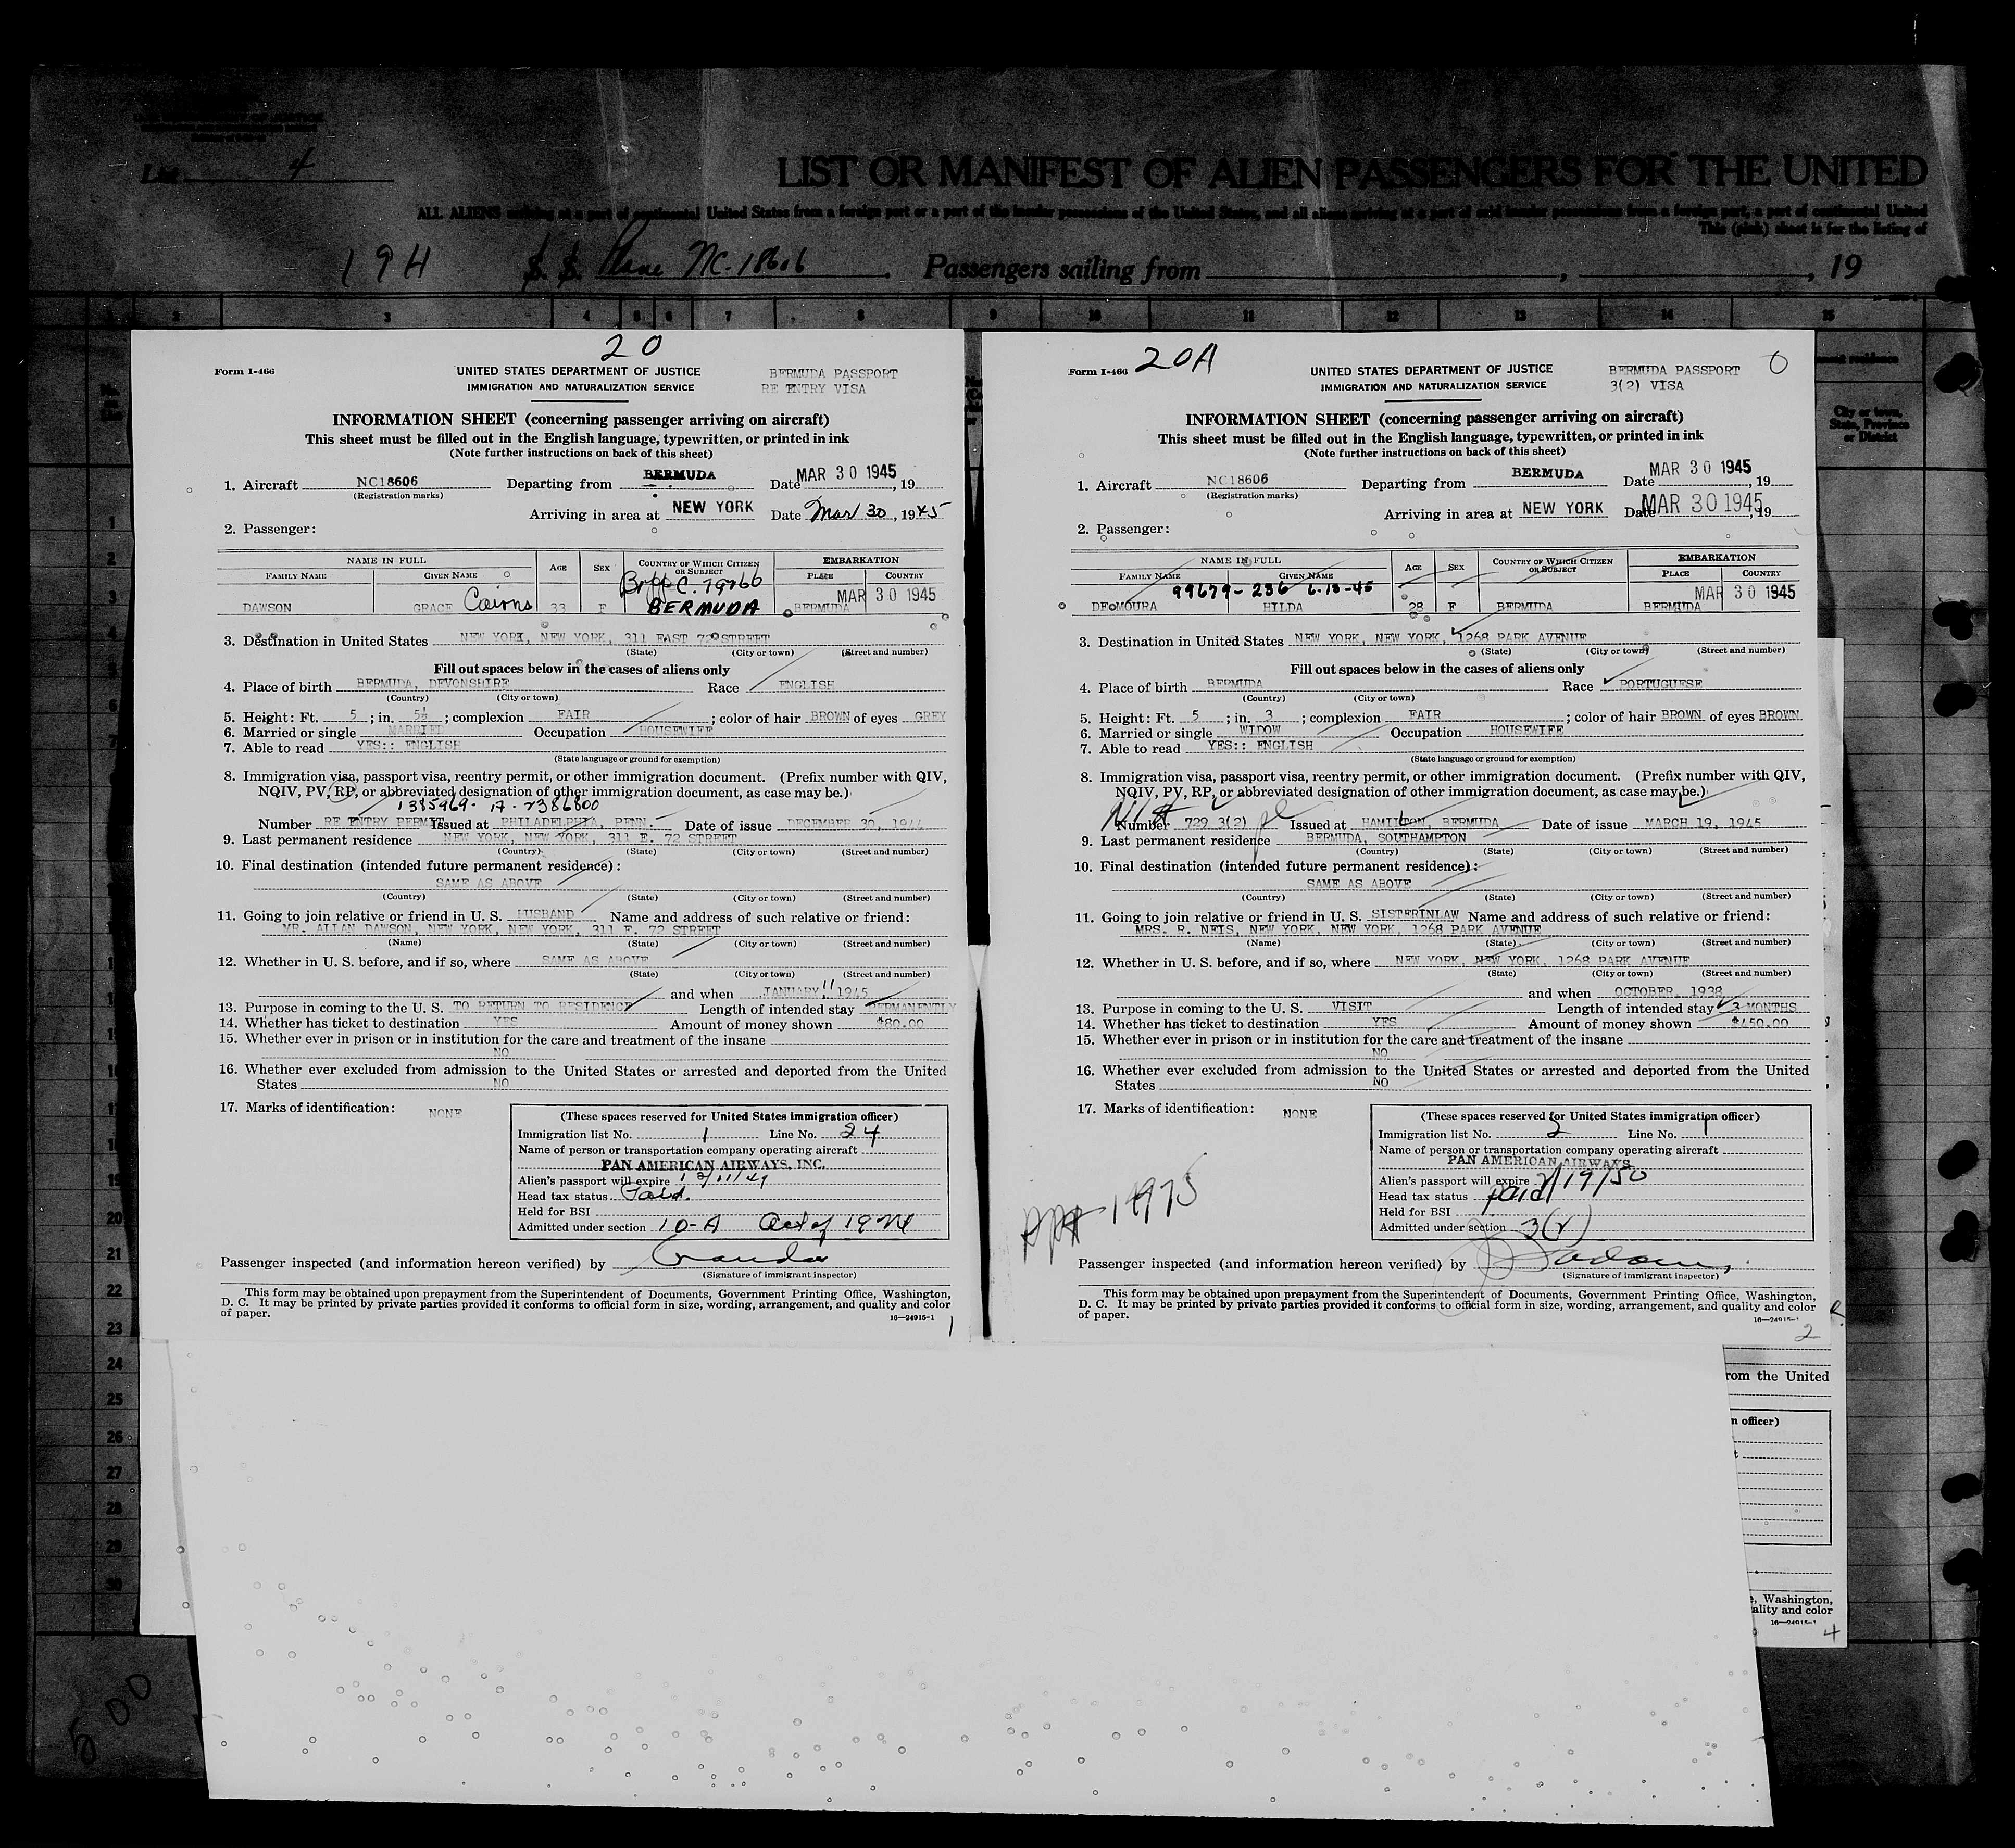 List 4
LIST OR MANIFEST OF ALIEN PASSENGERS FOR THE UNITED
ALL ALIENS arriving at a port of continental United States from a foreign port or a port of the insular possessions of the United States, and all aliens arriving at a port of said insular possessions from a foreign port, a port of continental United
This (pink) sheet is for the listing of
S. S. Plane NC-18606 Passengers sailing from , , 19
2 3 4 5 6 7 8 9 10 11 12 13 14 15
City or town, State, Province or District
20
Form I-466
UNITED STATES DEPARTMENT OF JUSTICE
IMMIGRATION AND NATURALIZATION SERVICE
BERMUDA PASSPORT
RE ENTRY VISA
INFORMATION SHEET (concerning passenger arriving on aircraft)
This sheet must be filled out in the English language, typewritten, or printed in ink
(Note further instructions on back of this sheet)
1. Aircraft NC18606 Departing from BERMUDA Date MAR 30 1945, 19
(Registration marks)
Arriving in area at NEW YORK Date Mar 30, 1945
2. Passenger:
NAME IN FULL AGE SEX COUNTRY OF WHICH CITIZEN OR SUBJECT EMBARKATION
FAMILY NAME GIVEN NAME PLACE COUNTRY
MAR 30 1945
DAWSON GRACE Cairns 33 F BERMUDA BERMUDA
3. Destination in United States NEW YORK, NEW YORK, 311 EAST 72 STREET
(State) (City or town) (Street and number)
Fill out spaces below in the cases of aliens only
4. Place of birth BERMUDA, DEVONSHIRE Race ENGLISH
(Country) (City or town)
5. Height: Ft. 5; in. 5½; complexion FAIR; color of hair BROWN of eyes GREY
6. Married or single MARRIED Occupation HOUSEWIFE
7. Able to read YES:: ENGLISH
(State language or ground for exemption)
8. Immigration visa, passport visa, reentry permit, or other immigration document. (Prefix number with QIV,
NQIV, PV, RP, or abbreviated designation of other immigration document, as case may be.)
1385969. 17. 2386800
Number RE ENTRY PERMIT Issued at PHILADELPHIA, PENN. Date of issue DECEMBER 30, 1944
9. Last permanent residence NEW YORK, NEW YORK, 311 E. 72 STREET
(Country) (State) (City or town) (Street and number)
10. Final destination (intended future permanent residence):
SAME AS ABOVE
(Country) (State) (City or town) (Street and number)
11. Going to join relative or friend in U. S. HUSBAND Name and address of such relative or friend:
MR. ALLAN DAWSON, NEW YORK, NEW YORK, 311 E. 72 STREET
(Name) (State) (City or town) (Street and number)
12. Whether in U. S. before, and if so, where SAME AS ABOVE
(State) (City or town) (Street and number)
and when JANUARY 11 1945
13. Purpose in coming to the U. S. TO RETURN TO RESIDENCE Length of intended stay PERMANENTLY
14. Whether has ticket to destination YES Amount of money shown $80.00
15. Whether ever in prison or in institution for the care and treatment of the insane
NO
16. Whether ever excluded from admission to the United States or arrested and deported from the United
States NO
17. Marks of identification: NONE
(These spaces reserved for United States immigration officer)
Immigration list No. 1 Line No. 24
Name of person or transportation company operating aircraft
PAN AMERICAN AIRWAYS, INC.
Alien's passport will expire 12/11/49
Head tax status Paid.
Held for BSI
Admitted under section 10-A Act of 1924
Passenger inspected (and information hereon verified) by
(Signature of immigrant inspector)
This form may be obtained upon prepayment from the Superintendent of Documents, Government Printing Office, Washington,
D. C. It may be printed by private parties provided it conforms to official form in size, wording, arrangement, and quality and color
of paper.
16—24915-1
1
20A
Form I-466
UNITED STATES DEPARTMENT OF JUSTICE
IMMIGRATION AND NATURALIZATION SERVICE
BERMUDA PASSPORT
3(2) VISA
0
INFORMATION SHEET (concerning passenger arriving on aircraft)
This sheet must be filled out in the English language, typewritten, or printed in ink
(Note further instructions on back of this sheet)
1. Aircraft NC18606 Departing from BERMUDA Date MAR 30 1945, 19
(Registration marks)
Arriving in area at NEW YORK Date MAR 30 1945, 19
2. Passenger:
NAME IN FULL AGE SEX COUNTRY OF WHICH CITIZEN OR SUBJECT EMBARKATION
FAMILY NAME GIVEN NAME PLACE COUNTRY
99679-236 6-18-45 MAR 30 1945
DEMOURA HILDA 28 F BERMUDA BERMUDA
3. Destination in United States NEW YORK, NEW YORK, 1268 PARK AVENUE
(State) (City or town) (Street and number)
Fill out spaces below in the cases of aliens only
4. Place of birth BERMUDA Race PORTUGUESE
(Country) (City or town)
5. Height: Ft. 5; in. 3; complexion FAIR; color of hair BROWN of eyes BROWN
6. Married or single WIDOW Occupation HOUSEWIFE
7. Able to read YES:: ENGLISH
(State language or ground for exemption)
8. Immigration visa, passport visa, reentry permit, or other immigration document. (Prefix number with QIV,
NQIV, PV, RP, or abbreviated designation of other immigration document, as case may be.)
Number 729 3(2) Issued at HAMILTON, BERMUDA Date of issue MARCH 19, 1945
9. Last permanent residence BERMUDA, SOUTHAMPTON
(Country) (State) (City or town) (Street and number)
10. Final destination (intended future permanent residence):
SAME AS ABOVE
(Country) (State) (City or town) (Street and number)
11. Going to join relative or friend in U. S. SISTERINLAW Name and address of such relative or friend:
MRS. R. NEIS, NEW YORK, NEW YORK, 1268 PARK AVENUE
(Name) (State) (City or town) (Street and number)
12. Whether in U. S. before, and if so, where NEW YORK, NEW YORK, 1268 PARK AVENUE
(State) (City or town) (Street and number)
and when OCTOBER, 1938
13. Purpose in coming to the U. S. VISIT Length of intended stay 3 MONTHS
14. Whether has ticket to destination YES Amount of money shown $450.00
15. Whether ever in prison or in institution for the care and treatment of the insane
NO
16. Whether ever excluded from admission to the United States or arrested and deported from the United
States NO
17. Marks of identification: NONE
(These spaces reserved for United States immigration officer)
Immigration list No. 2 Line No. 1
Name of person or transportation company operating aircraft
PAN AMERICAN AIRWAYS
Alien's passport will expire 2/19/50
Head tax status paid
Held for BSI
Admitted under section 3(2)
14975
Passenger inspected (and information hereon verified) by
(Signature of immigrant inspector)
This form may be obtained upon prepayment from the Superintendent of Documents, Government Printing Office, Washington,
D. C. It may be printed by private parties provided it conforms to official form in size, wording, arrangement, and quality and color
of paper.
2
rom the United
n officer)
, Washington,
ality and color
16—24915-1
4
1
2
3
4
5
6
7
19
20
21
22
23
24
25
26
27
28
29
30
500